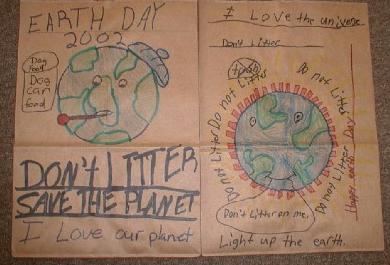 EARTH DAY
2002
Dog
Food
Dog
can
food
DON'T LITTER
SAVE THE PLANET
I Love our planet
I Love the universe
Don't Litter
trash
Do not Litter
Do not Litter
Don't Litter
Do Not Litter
Happy earth Day
Don't Litter on me.
Light up the earth.